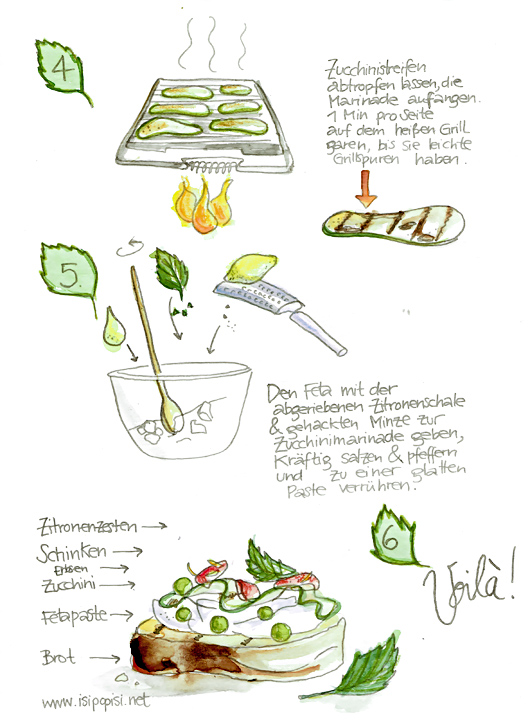 4
Zucchinistreifen
abtropfen lassen, die
Marinade auffangen.
1 Min pro Seite
auf dem heißen Grill
garen, bis sie leichte
Grillspuren haben.
5.
Den Feta mit der
abgeriebenen Zitronenschale
& gehackten Minze zur
Zucchinimarinade geben,
Kräftig salzen & pfeffern
und zu einer glatten
Paste verrühren.
6
Voilà!
Zitronenzesten
Schinken
Erbsen
Zucchini
Fetapaste
Brot
www.isipopisi.net